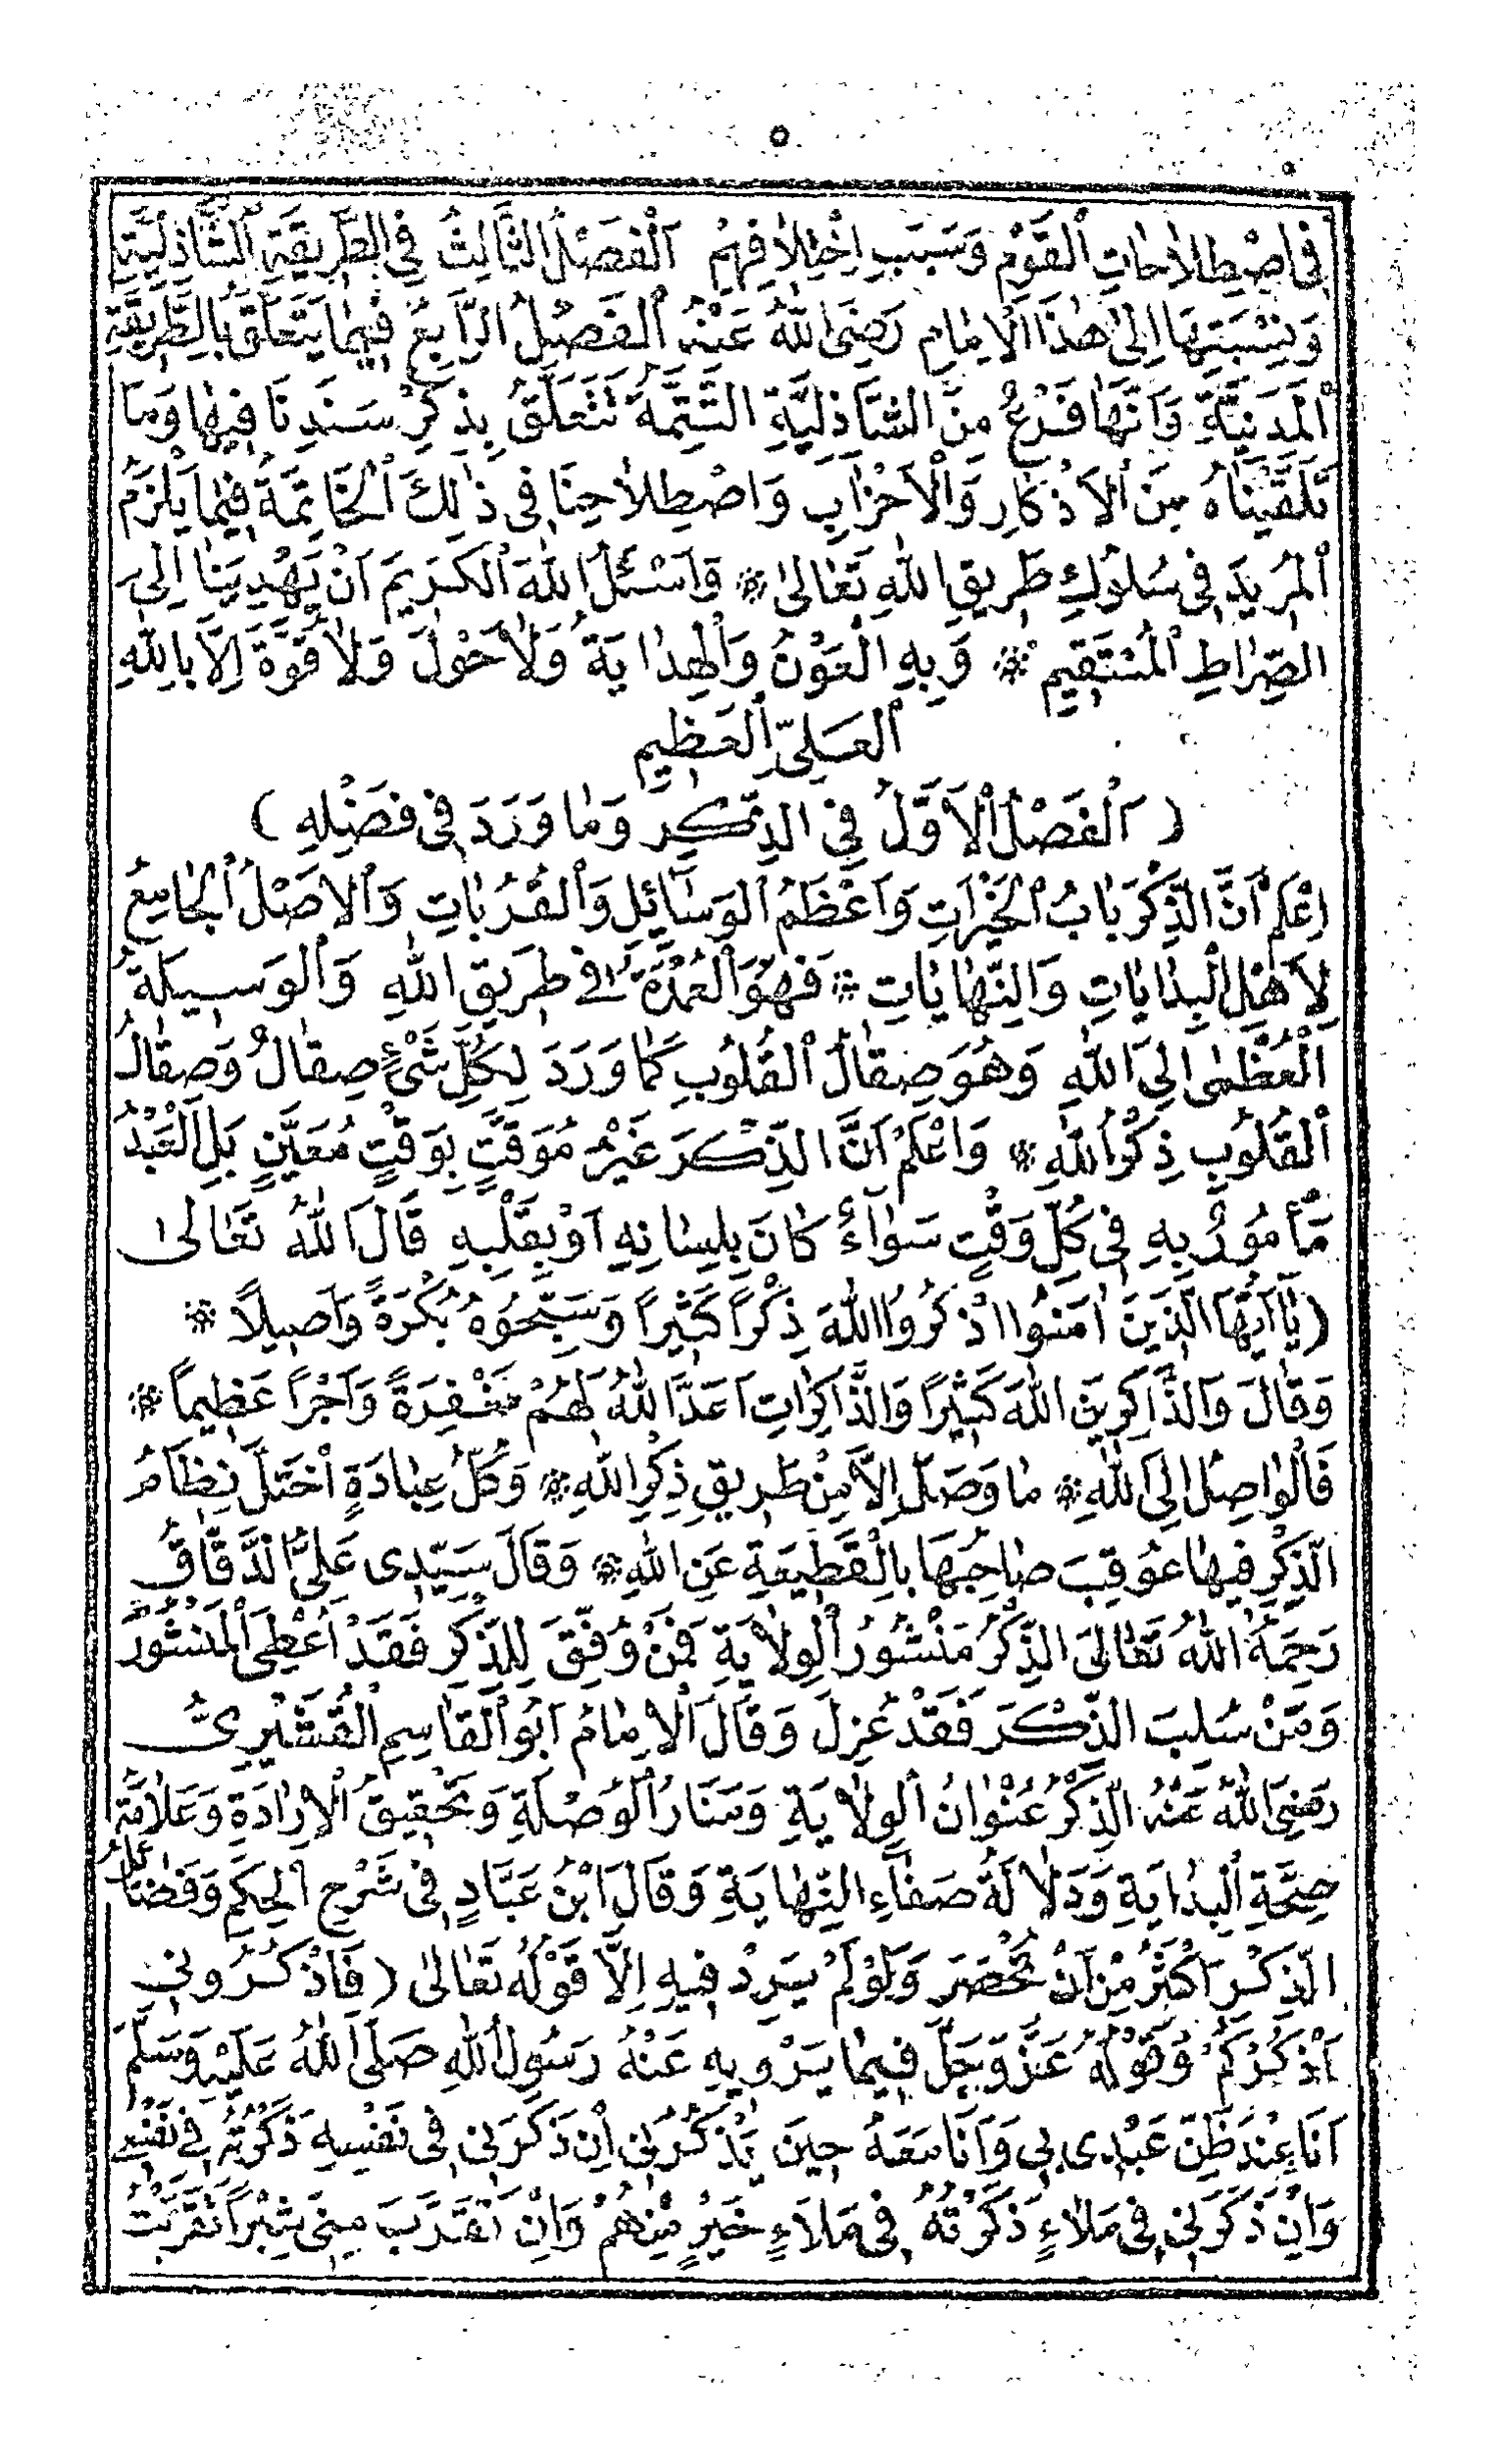 ٥
فِى اصْطِلَاحَاتِ الْقَوْمِ وَسَبَبِ اِخْتِلَافِهِمْ اَلْفَصْلُ الثَّالِثُ فِى الطَّرِيقَةِ الشَّاذِلِيَّةِ
وَنِسْبَتِهَا اِلىٰ هٰذَا الْاِمَامِ رَضِىَ اللهُ عَنْهُ الْفَصْلُ الرَّابِعُ فِيمَا يَتَعَلَّقُ بِالطَّرِيقَةِ
الْمَدَنِيَّةِ وَاَنَّهَا فَرْعٌ مِنَ الشَّاذِلِيَّةِ التَّتِمَّةُ تَتَعَلَّقُ بِذِكْرِ سَنَدِنَا فِيهَا وَمَا
تَلَقَّيْنَاهُ مِنَ الْاَذْكَارِ وَالْاَحْزَابِ وَاصْطِلَاحِنَا فِى ذٰلِكَ الْخَاتِمَةُ فِيمَا يَلْزَمُ
الْمُرِيدَ فِى سُلُوكِ طَرِيقِ اللهِ تَعَالىٰ * وَاَسْئَلُ اللهَ الْكَرِيمَ اَنْ يَهْدِيَنَا اِلىَ
الصِّرَاطِ الْمُسْتَقِيمِ * وَبِهِ الْعَوْنُ وَالْهِدَايَةُ وَلَا حَوْلَ وَلَا قُوَّةَ اِلَّا بِاللهِ
الْعَلِىِّ الْعَظِيمِ
( اَلْفَصْلُ الْاَوَّلُ فِى الذِّكْرِ وَمَا وَرَدَ فِى فَضْلِهِ )
اِعْلَمْ اَنَّ الذِّكْرَ بَابُ الْخَيْرَاتِ وَاَعْظَمُ الْوَسَائِلِ وَالْقُرُبَاتِ وَالْاَصْلُ الْجَامِعُ
لِاَهْلِ الْبِدَايَاتِ وَالنِّهَايَاتِ * فَهُوَ الْعُمْدَةُ فِى طَرِيقِ اللهِ وَالْوَسِيلَةُ
الْعُظْمىٰ اِلىَ اللهِ وَهُوَ صِقَالُ الْقُلُوبِ كَمَا وَرَدَ لِكُلِّ شَىْءٍ صِقَالٌ وَصِقَالُ
الْقُلُوبِ ذِكْرُ اللهِ * وَاعْلَمْ اَنَّ الذِّكْرَ غَيْرُ مُوَقَّتٍ بِوَقْتٍ مُعَيَّنٍ بَلِ الْعَبْدُ
مَأْمُورٌ بِهِ فِى كُلِّ وَقْتٍ سَوَاءٌ كَانَ بِلِسَانِهِ اَوْ بِقَلْبِهِ قَالَ اللهُ تَعَالىٰ
( يَا اَيُّهَا الَّذِينَ اٰمَنُوا اذْكُرُوا اللهَ ذِكْرًا كَثِيرًا وَسَبِّحُوهُ بُكْرَةً وَاَصِيلاً *
وَقَالَ وَالذَّاكِرِينَ اللهَ كَثِيرًا وَالذَّاكِرَاتِ اَعَدَّ اللهُ لَهُمْ مَغْفِرَةً وَاَجْرًا عَظِيمًا *
فَالْوَاصِلُ اِلىَ اللهِ * مَا وَصَلَ اِلَّا مِنْ طَرِيقِ ذِكْرِ اللهِ * وَكُلُّ عِبَادَةٍ اخْتَلَّ نِظَامُ
الذِّكْرِ فِيهَا عُوقِبَ صَاحِبُهَا بِالْقَطِيعَةِ عَنِ اللهِ * وَقَالَ سَيِّدِى عَلِىٌّ الدَّقَّاقُ
رَحِمَهُ اللهُ تَعَالىَ الذِّكْرُ مَنْشُورُ الْوِلَايَةِ فَمَنْ وُفِّقَ لِلذِّكْرِ فَقَدْ اُعْطِىَ الْمَنْشُورَ
وَمَنْ سُلِبَ الذِّكْرَ فَقَدْ عُزِلَ وَقَالَ الْاِمَامُ اَبُو الْقَاسِمِ الْقُشَيْرِىُّ
رَضِىَ اللهُ عَنْهُ الذِّكْرُ عُنْوَانُ الْوِلَايَةِ وَمَنَارُ الْوُصْلَةِ وَتَحْقِيقُ الْاِرَادَةِ وَعَلَامَةُ
صِحَّةِ الْبِدَايَةِ وَدَلَالَةُ صَفَاءِ النِّهَايَةِ وَقَالَ ابْنُ عَبَّادٍ فِى شَرْحِ الْحِكَمِ وَفَضَائِلُ
الذِّكْرِ اَكْثَرُ مِنْ اَنْ تُحْصَرَ وَلَوْ لَمْ يَرِدْ فِيهِ اِلَّا قَوْلُهُ تَعَالىٰ ( فَاذْكُرُونِى
اَذْكُرْكُمْ وَقَوْلُهُ عَزَّ وَجَلَّ فِيمَا يَرْوِيهِ عَنْهُ رَسُولُ اللهِ صَلَّى اللهُ عَلَيْهِ وَسَلَّمَ
اَنَا عِنْدَ ظَنِّ عَبْدِى بِى وَاَنَا مَعَهُ حِينَ يَذْكُرُنِى اِنْ ذَكَرَنِى فِى نَفْسِهِ ذَكَرْتُهُ فِى نَفْسِى
وَاِنْ ذَكَرَنِى فِى مَلَاءٍ ذَكَرْتُهُ فِى مَلَاءٍ خَيْرٍ مِنْهُمْ وَاِنْ تَقَرَّبَ مِنِّى شِبْرًا تَقَرَّبْتُ